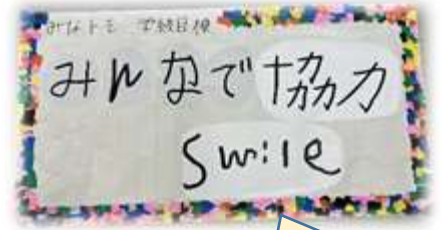 みなトモ 学級目標
みんなで協力
smile